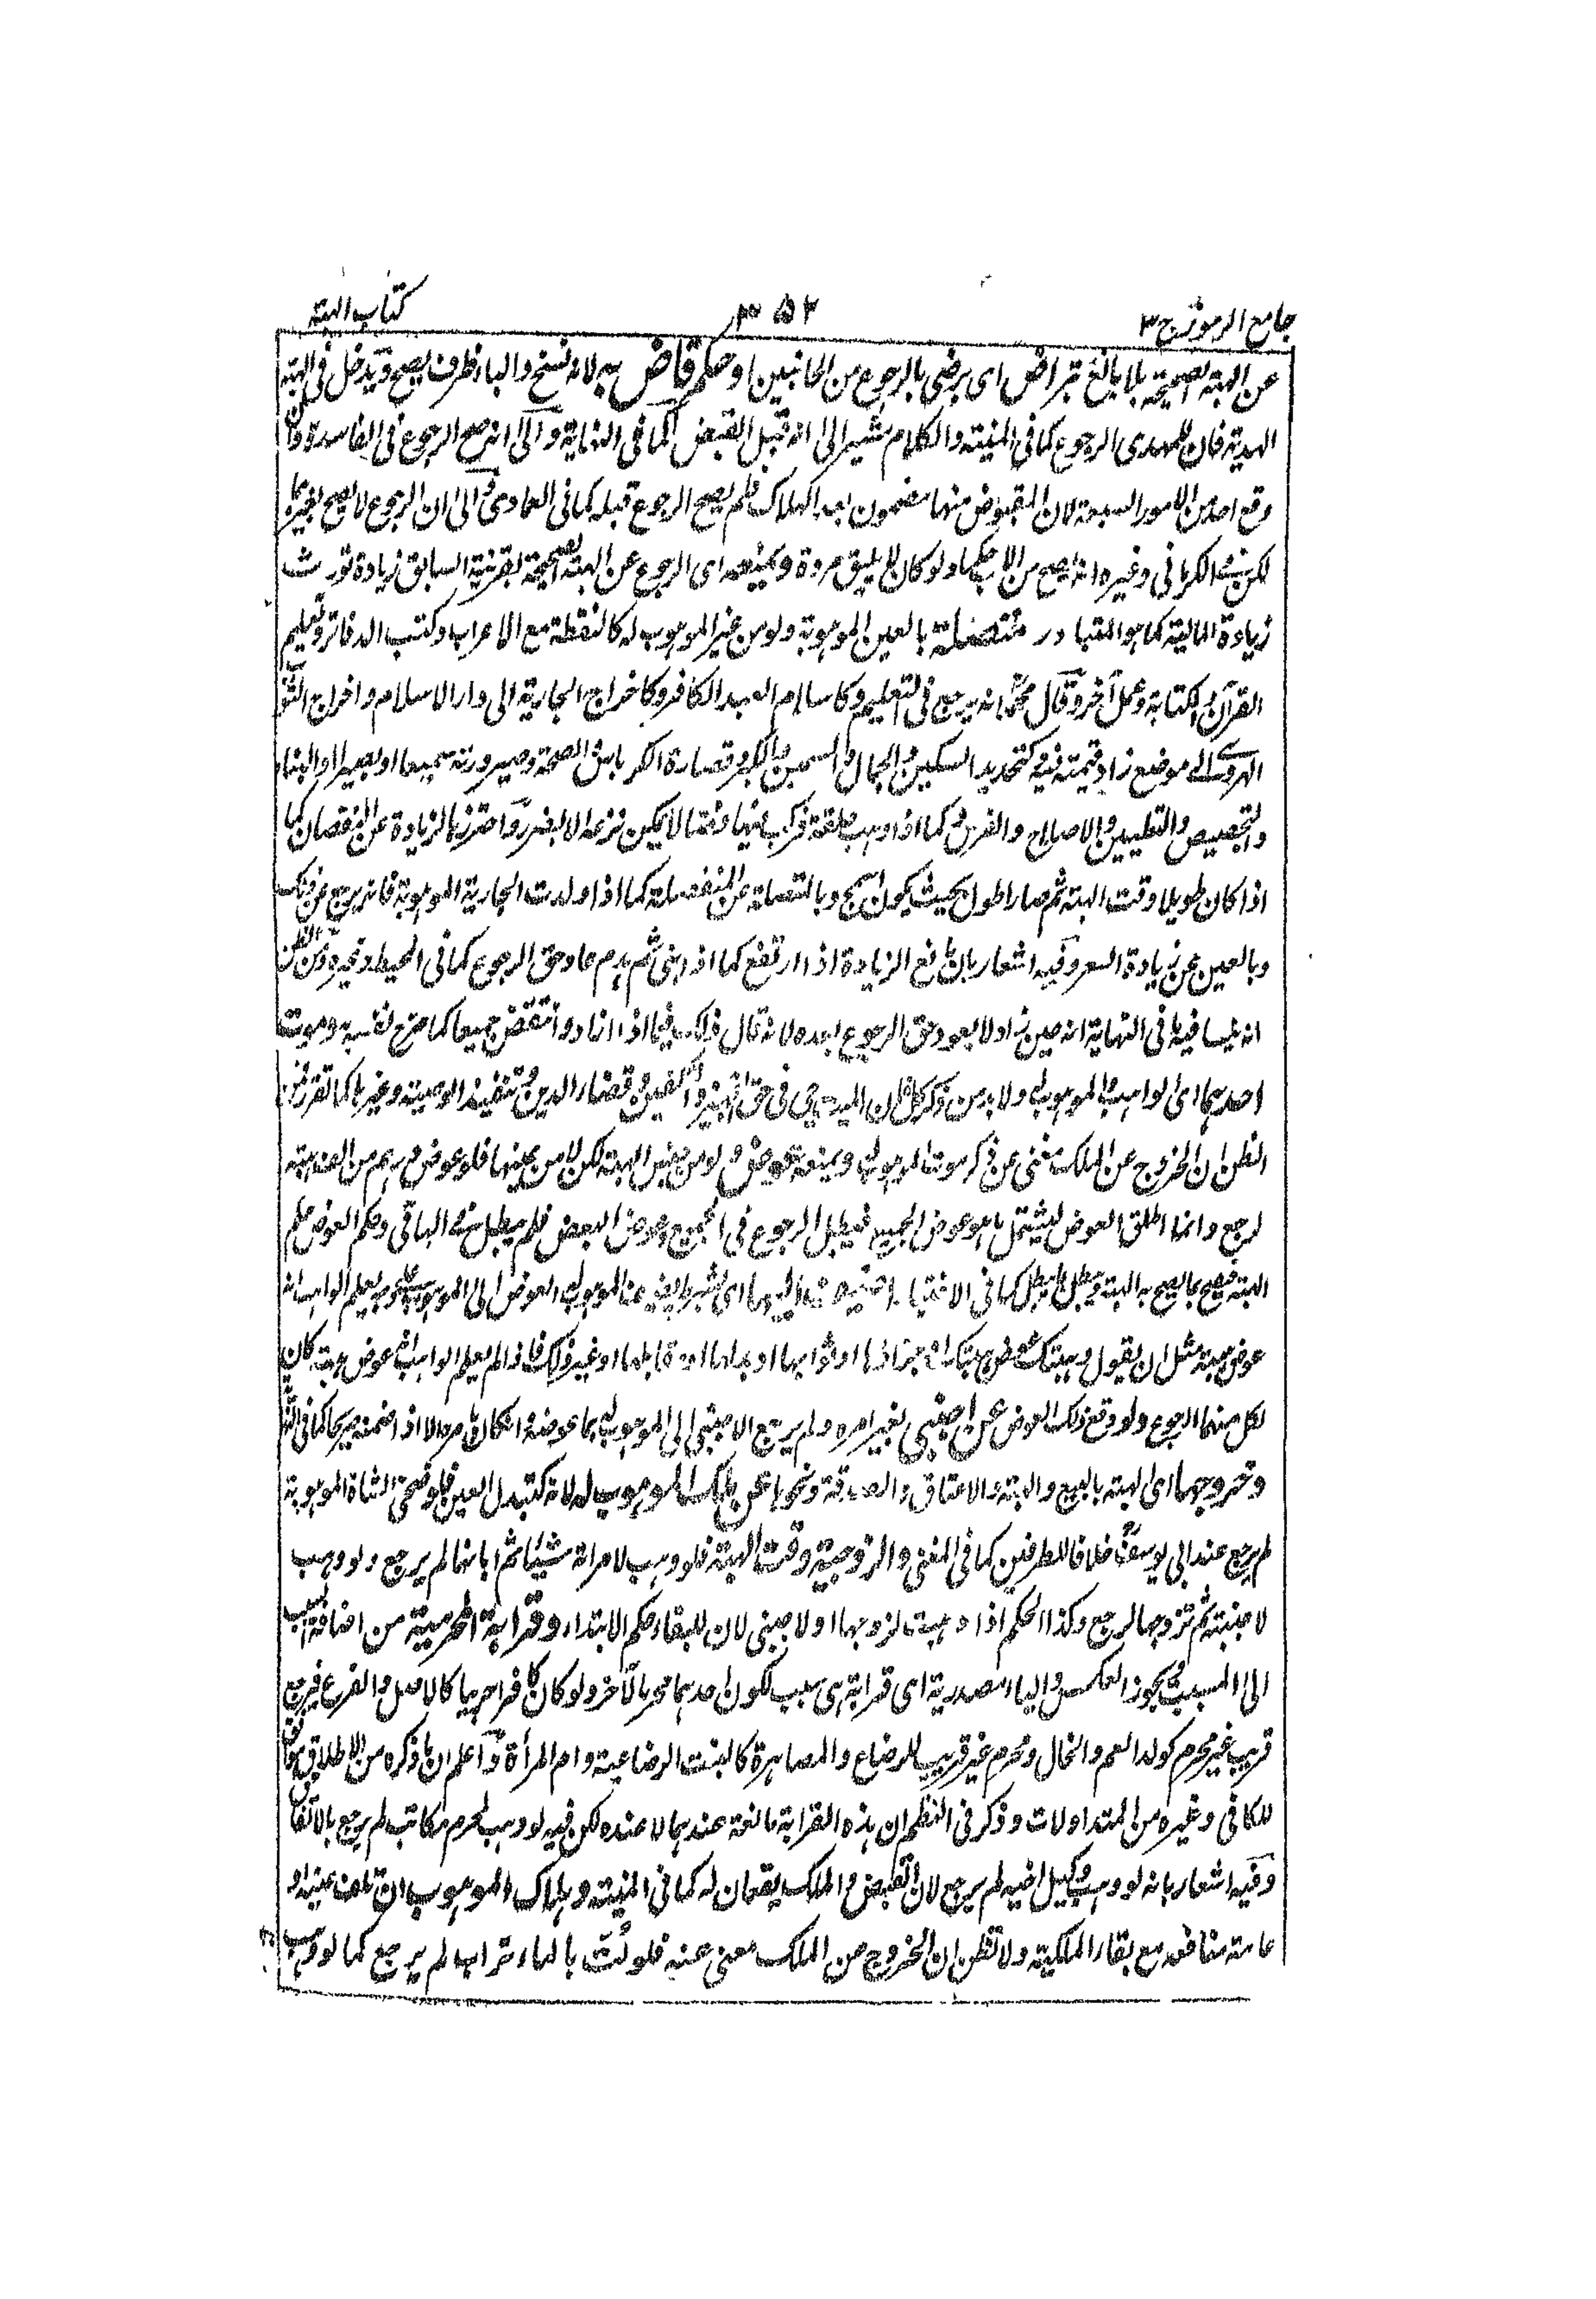 جامع الرموز ج ٣
٣٥٢
كتاب الهبة
عن الهبة الصحيحة بلا مانع بتراض اى برضى بالرجوع من الجانبين او حكم قاض به لانه فسخ والباء ظرف يصح ويدخل فى الهبة
الهدية فان للمهدى الرجوع كما فى المنية والكلام مشير الى انه قبل القبض كما فى النهاية والى انه صح الرجوع فى الفاسدة وان
وقع احد من الامور السبعة لان المقبوض منها مضمون بعد الهلاك فلم يصح الرجوع قبله كما فى العمادى والى ان الرجوع لا يصح بغيرهما
لكن فى الكرمانى وغيره انه يصح من الاب كلها ولو كان لا يليق مروة ويمنعه اى الرجوع عن الهبة الصحيحة بقرينة السابق زيادة تورث
زيادة المالية كما هو المتبادر متصلة بالعين الموهوبة ولو من غير الموهوب له كالنقطة مع الاعراب وكتب الدفاتر وتعليم
القرآن والكتابة وعمل آخر وقال محمد انه يرجع فى التعليم وكاسلام العبد الكافر وكاخراج الجارية الى دار الاسلام واخراج الثوب
الهروى الى موضع زاد قيمته فيه كتحديد السكين والجمال والسمن والكبر وقصارة الكرباس والصحة وصيرورته سميعا او بصيرا والبناء
والتجصيص والتطيين والاصلاح والغرس كما اذا وهب حلقة فركب فيها فصا لا يمكن نزعه الا بضرر واحترز بالزيادة عن النقصان كما
اذا كان طويلا وقت الهبة ثم صار اطول بحيث يكون اسمج وبالمتصلة عن المنفصلة كما اذا ولدت الجارية الموهوبة فانه يرجع عن
وبالعين عن زيادة السعر وفيه اشعار بان مانع الزيادة اذا ارتفع كما اذا بنى ثم هدم عاد حق الرجوع كما فى المحيط وغيره ومن الظن
انه ليناقيه ما فى النهاية انه حين زاد لا يعود حق الرجوع بعده لانه قال ذلك فيما اذا زاد وانتقض جميعا كما صرح نفسه به وموت
احدهما اى الواهب والموهوب له ولا بد من ذكر كل لان الميت حى فى حق التجهيز والتكفين وقضاء الدين وتنفيذ الوصية وغيرها كما تقرر فمن
الظن ان الخروج عن الملك مغنى عن ذكر موت الموهوب له ويمنعه عوض ولو من جنس الهبة لكن لا من عينها فلو عوض درهم من الف هبته
لرجع وانما اطلق العوض ليشتمل ما هو عوض الجميع فيبطل الرجوع فى الجميع وعوض البعض فلم يبطل فى الباقى وحكم العوض حكم
الهبة فيصح بما يصح به الهبة ويبطل بما يبطل كما فى الاختيار اضيف اليها اى بشرط العوض الى الموهوب بحيث يعلم الواهب انه
عوض هبته مثل ان يقول وهبتك عوض هبتك او جزاءها او ثوابها او بدلها او مقابلها او غير ذلك فاذا لم يعلم الواهب انه عوض هبته كان
لكل منهما الرجوع ولو وقع ذلك العوض عن اجنبى بغير امره ولم يرجع الاجنبى الى الموهوب له بما عوضه وان كان بامره الا اذا ضمنه صريحا كما فى
وخروجها اى الهبة بالبيع والهبة والاعتاق والصدقة ونحوها عن ملك الموهوب له لانه كتبدل العين فلو ضحى الشاة الموهوبة
لم يرجع عند ابى يوسف خلافا للطرفين كما فى المغنى والزوجية وقت الهبة فلو وهب لامرأة شيئا ثم ابانها لم يرجع ولو وهب
لاجنبية ثم تزوجها لرجع وكذا الحكم اذا وهبت لزوجها او لاجنبى لان للبقاء حكم الابتداء وقرابة المحرمية من اضافة السبب
الى المسبب ويجوز العكس والياء مصدرية اى قرابة هى سبب لكون احدهما محرما لآخر ولو كان كافرا حربيا كالاصل والفرع فيرجع
قريب غير محرم كولد العم والخال ومحرم غير قريب للرضاع والمصاهرة كالبنت الرضاعية وام المرأة واعلم ان ما ذكره من الاطلاق موافق
للكافى وغيره من المتداولات وذكر فى النظم ان هذه القرابة مانعة عندهما لا عنده لكن فيه لو وهب لمحرم مكاتب لم يرجع بالاتفاق
وفيه اشعار بانه لو وهب وكيل اخيه لم يرجع لان القبض والملك يقعان له كما فى المنية وهلاك الموهوب ان تلف عينه او
عامة منافعه مع بقاء الملكية ولا تظن ان الخروج من الملك مغنى عنه فلو لت بالماء تراب لم يرجع كما لو وهب